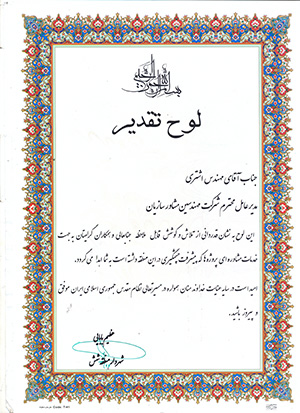 بسم الله الرحمن الرحیم
لوح تقدیر
جناب آقای مهندس اشتری
مدیرعامل محترم شرکت مهندسین مشاور سازیان
این لوح به نشان قدردانی از تلاش و کوشش قابل ملاحظه جنابعالی و همکاران گرامیتان به جهت
خدمات مشاوره ای پروژه ها که پیشرفت چشمگیری در این منطقه داشته است به شما اهدا می گردد.
امید است در سایه عنایت خداوند منان همواره در مسیر تعالی نظام مقدس جمهوری اسلامی ایران موفق
و پیروز باشید.
عظیم بابایی
شهردار منطقه شش